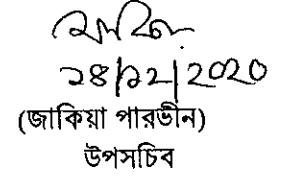 ২৪/১২/২০২০
(জাকিয়া পারভীন)
উপসচিব